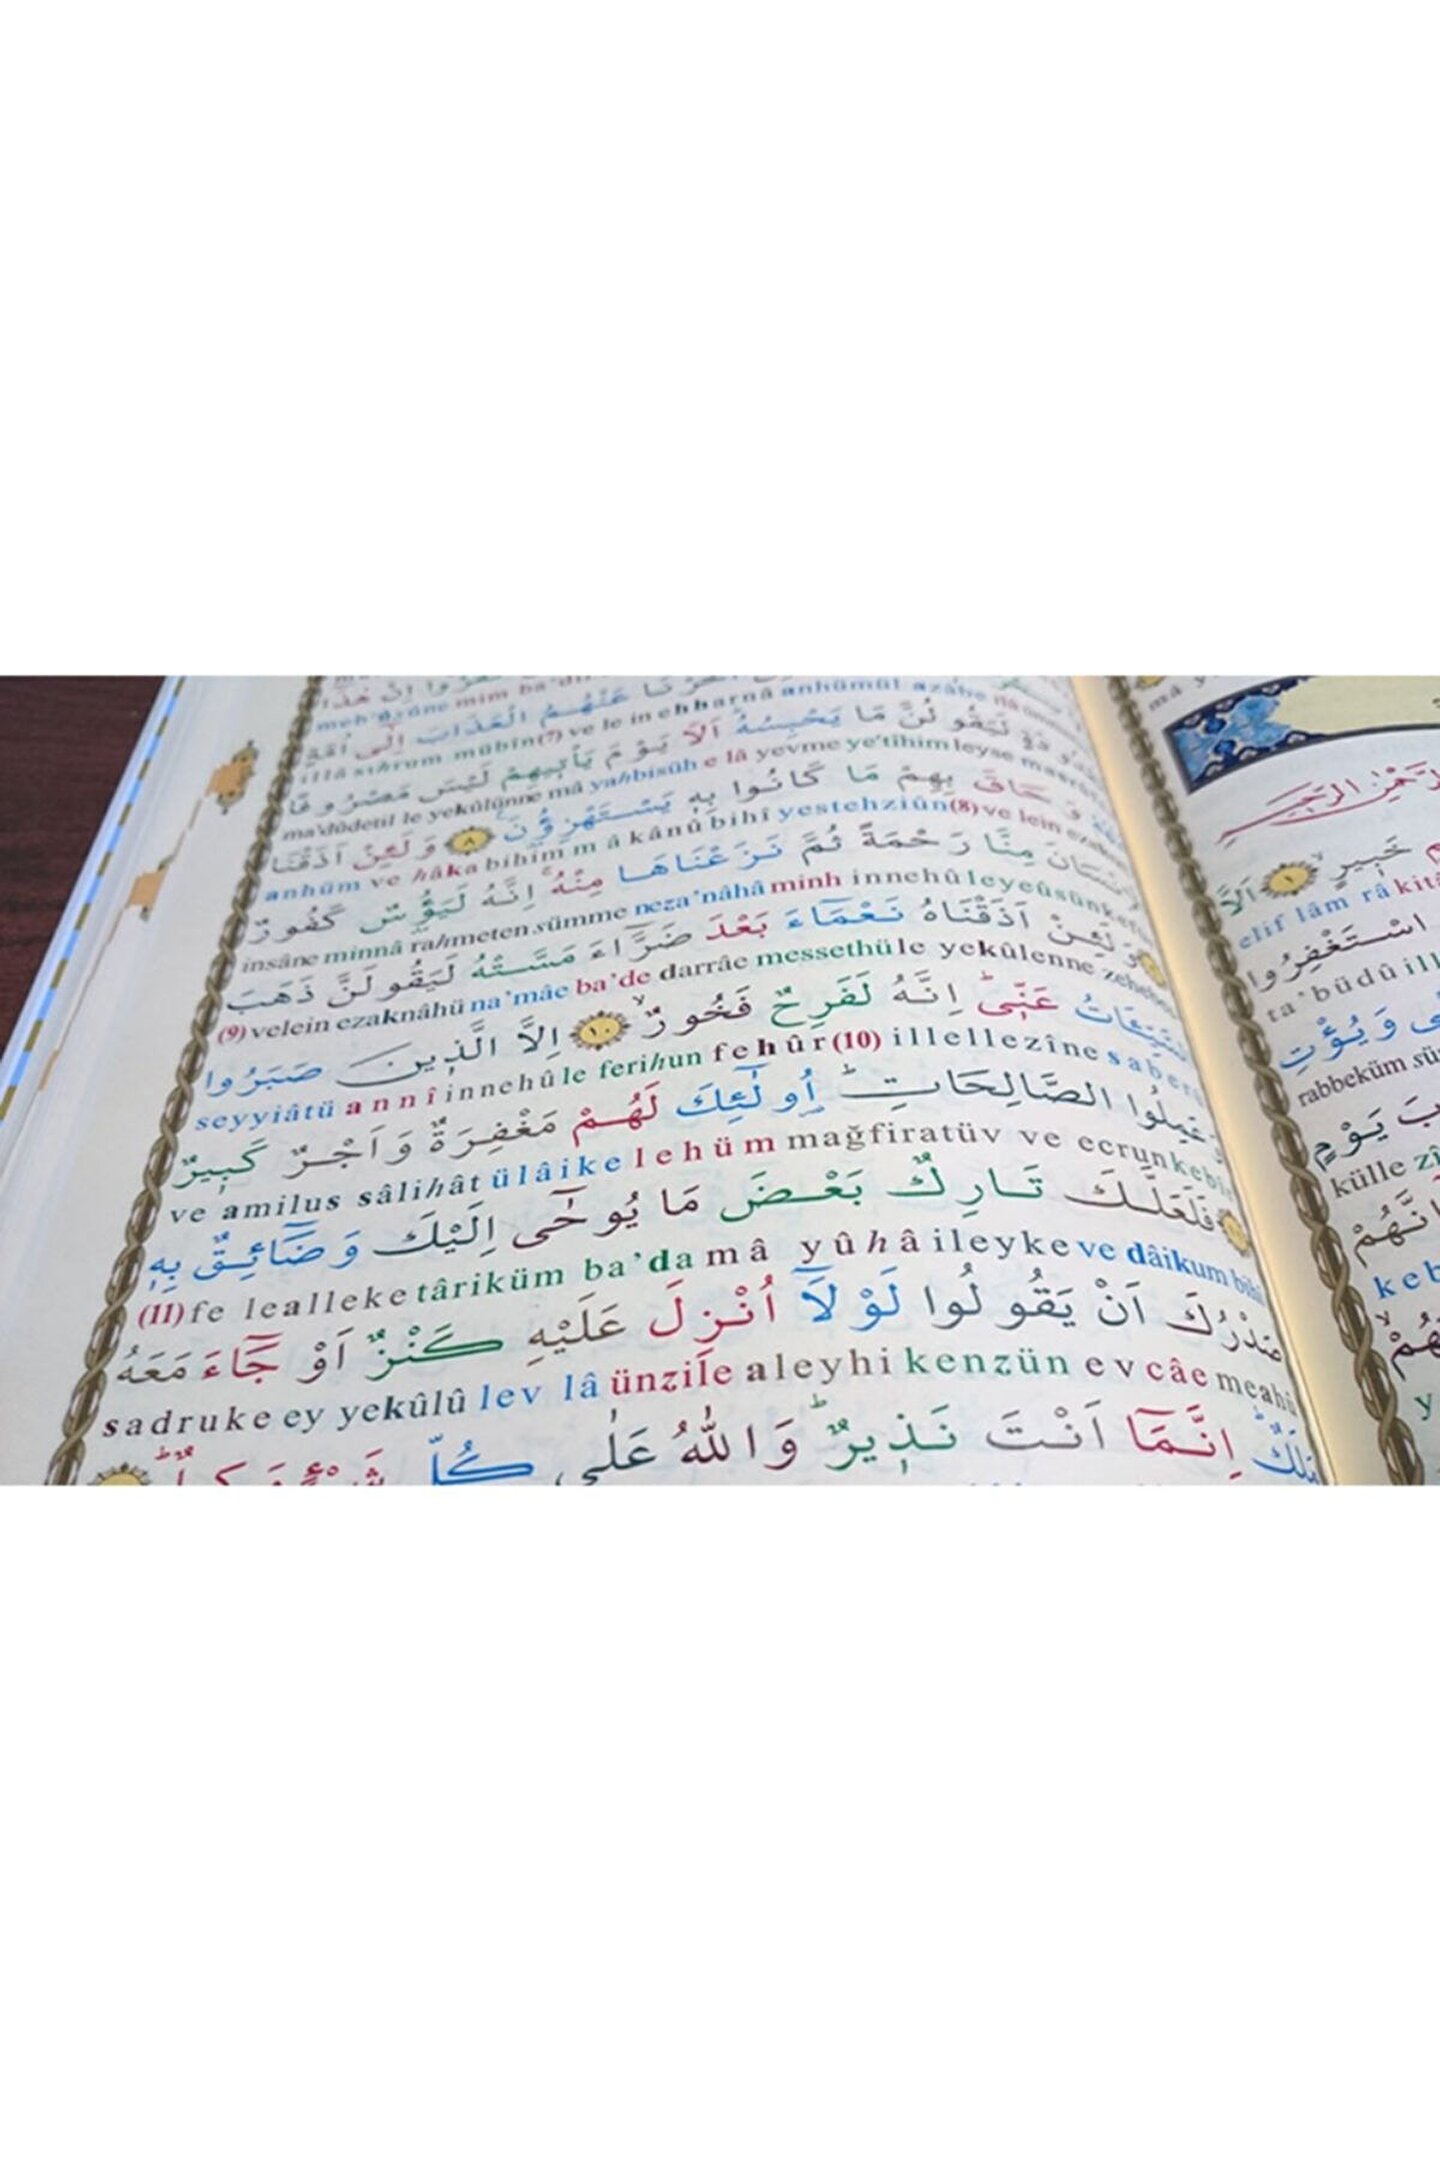 عَنْهُمُ الْعَذَابَ اِلٰٓى اُمَّةٍ
illâ sihrum mübîn(7) ve le in ehharnâ anhümül azâbe
لَيَقُولُنَّ مَا يَحْبِسُهُ اَلَا يَوْمَ يَأْتِيهِمْ لَيْسَ مَصْرُوفًا
ma'dûdetil le yekûlünne mâ yahbisüh e lâ yevme ye'tîhim leyse
وَحَاقَ بِهِمْ مَا كَانُوا بِهٖ يَسْتَهْزِؤُنَ ٨ وَلَئِنْ اَذَقْنَا
anhüm ve hâka bihim m â kânû bihî yestehziûn(8) ve lein
الْاِنْسَانَ مِنَّا رَحْمَةً ثُمَّ نَزَعْنَاهَا مِنْهُ اِنَّهُ لَيَؤُسٌ كَفُورٌ
insâne minnâ rahmeten sümme neza'nâhâ minh innehû leyeûsün
وَلَئِنْ اَذَقْنَاهُ نَعْمَٓاءَ بَعْدَ ضَرَّٓاءَ مَسَّتْهُ لَيَقُولَنَّ ذَهَبَ
(9) velein ezaknâhü na'mâe ba'de darrâe messethü le yekûlenne
السَّيِّـَٔاتُ عَنّٖى اِنَّهُ لَفَرِحٌ فَخُورٌ ١٠ اِلَّا الَّذٖينَ صَبَرُوا
seyyiâtü annî innehû le ferihun fehûr(10) illellezîne saberû
وَعَمِلُوا الصَّالِحَاتِ اُو۬لٰٓئِكَ لَهُمْ مَغْفِرَةٌ وَاَجْرٌ كَبٖيرٌ
ve amilus sâlihât ülâike lehüm mağfiratüv ve ecrun
فَلَعَلَّكَ تَارِكٌ بَعْضَ مَا يُوحٰٓى اِلَيْكَ وَضَٓائِقٌ بِهٖ
(11) fe lealleke târiküm ba'da mâ yûhâ ileyke ve dâikum bihî
صَدْرُكَ اَنْ يَقُولُوا لَوْ لَٓا اُنْزِلَ عَلَيْهِ كَنْزٌ اَوْ جَٓاءَ مَعَهُ
sadruke ey yekûlû lev lâ ünzile aleyhi kenzün ev câe meahû
مَلَكٌ اِنَّمَٓا اَنْتَ نَذٖيرٌ وَاللّٰهُ عَلٰى كُلِّ
خَبٖيرٍ ١ اَلَّا
elif lâm râ
اسْتَغْفِرُوا
ta'büdû
وَيُؤْتِ
rabbeküm
يَوْمٍ
külle